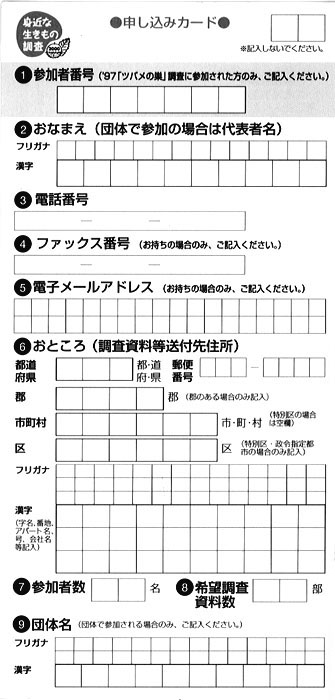 身近な
生きもの
調査
●申し込みカード●
※記入しないでください。
❶参加者番号（'97「ツバメの巣」調査に参加された方のみ、ご記入ください。）
❷おなまえ（団体で参加の場合は代表者名）
フリガナ
漢字
❸電話番号
― ―
❹ファックス番号（お持ちの場合のみ、ご記入ください。）
― ―
❺電子メールアドレス（お持ちの場合のみ、ご記入ください。）
❻おところ（調査資料等送付先住所）
都道府県 都・道府・県 郵便番号 ―
郡 郡（郡のある場合のみ記入）
市町村 市・町・村（特別区の場合は空欄）
区 区（特別区・政令指定都市の場合のみ記入）
フリガナ
漢字
（字名、番地、
アパート名、
号、会社名
等記入）
❼参加者数 名 ❽希望調査資料数 部
❾団体名（団体で参加される場合のみ、ご記入ください。）
フリガナ
漢字